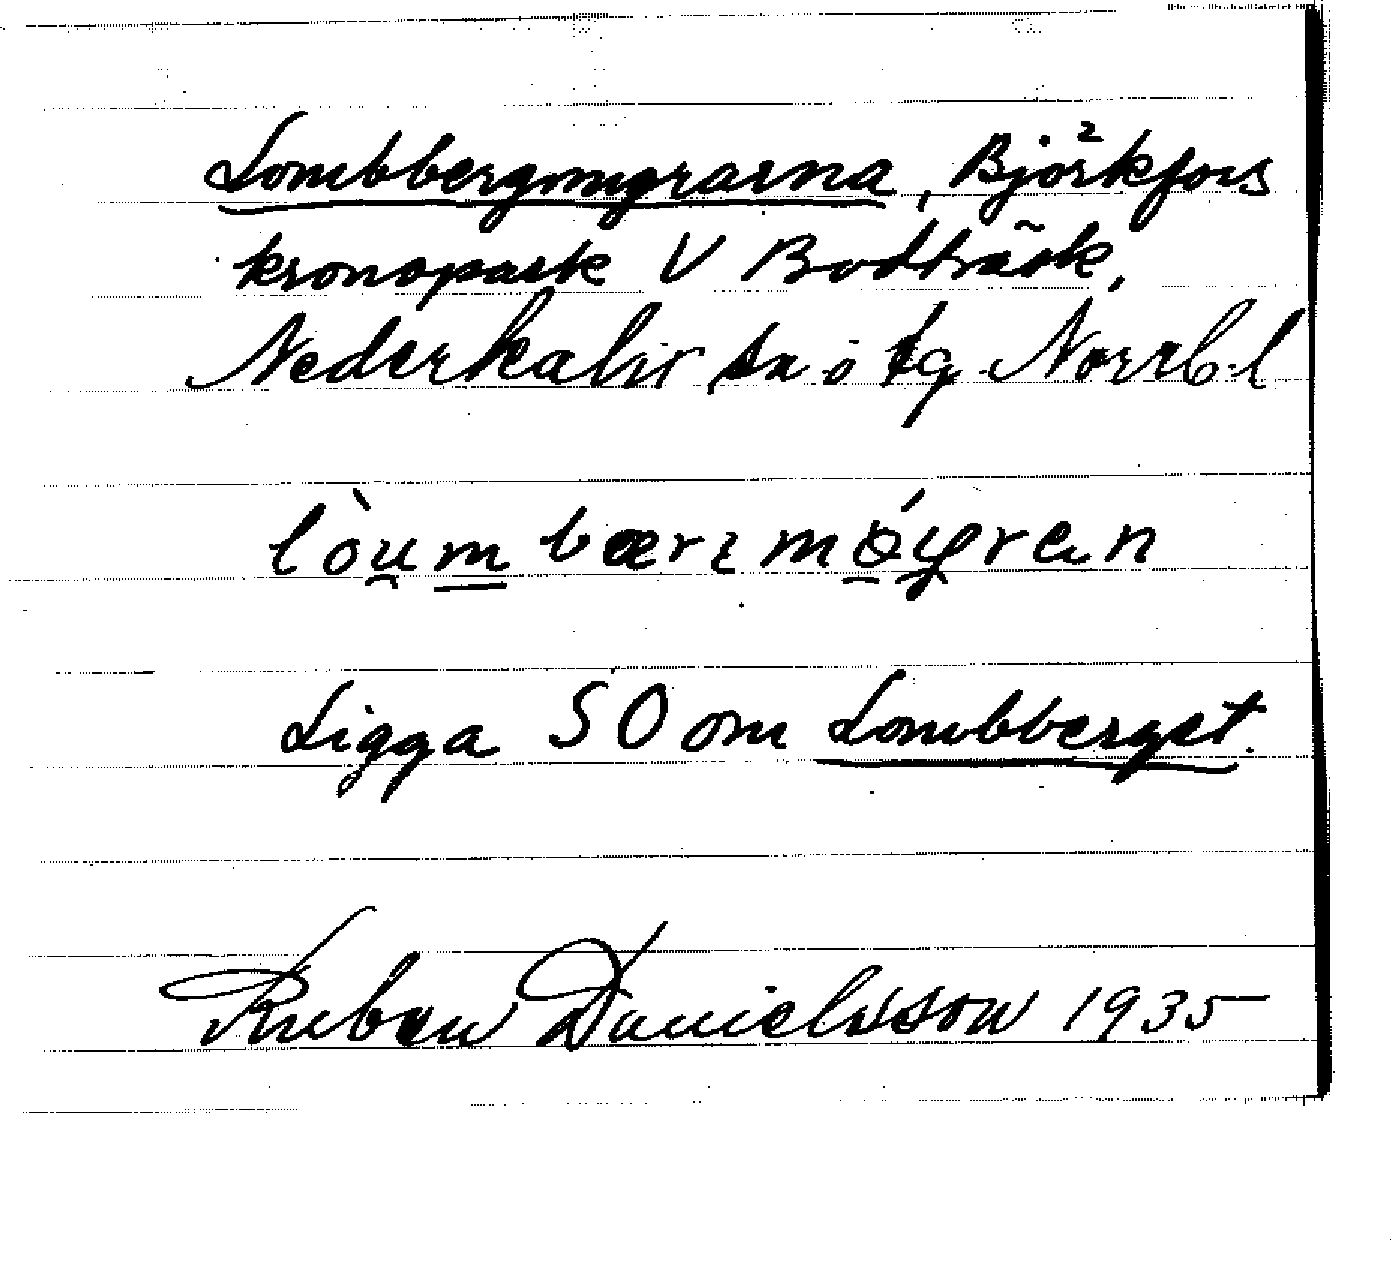 Lombbergmyrarna, Björkfors
kronopark V Bodträsk,
Nederkalix sn o tg Norrb. l
Ligga SO om Lombberget.
Ruben Danielsson 1935